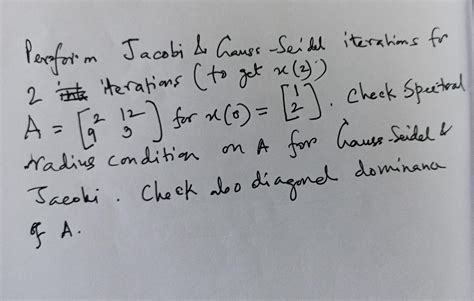 Perform Jacobi & Gauss-Seidel iterations for
2 iterations (to get x(2))
A = [2 12
9 3] for x(0) = [1
2]. Check Spectral
radius condition on A for Gauss-Seidel &
Jacobi. Check also diagonal dominance
of A.